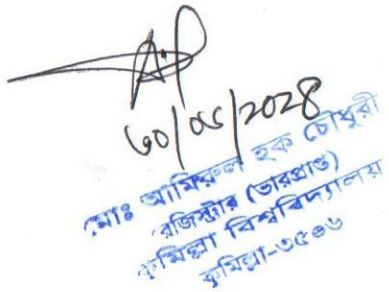 ৩০/০৫/২০২৪
মোঃ আমিরুল হক চৌধুরী
রেজিস্ট্রার (ভারপ্রাপ্ত)
কুমিল্লা বিশ্ববিদ্যালয়
কুমিল্লা-৩৫০৬